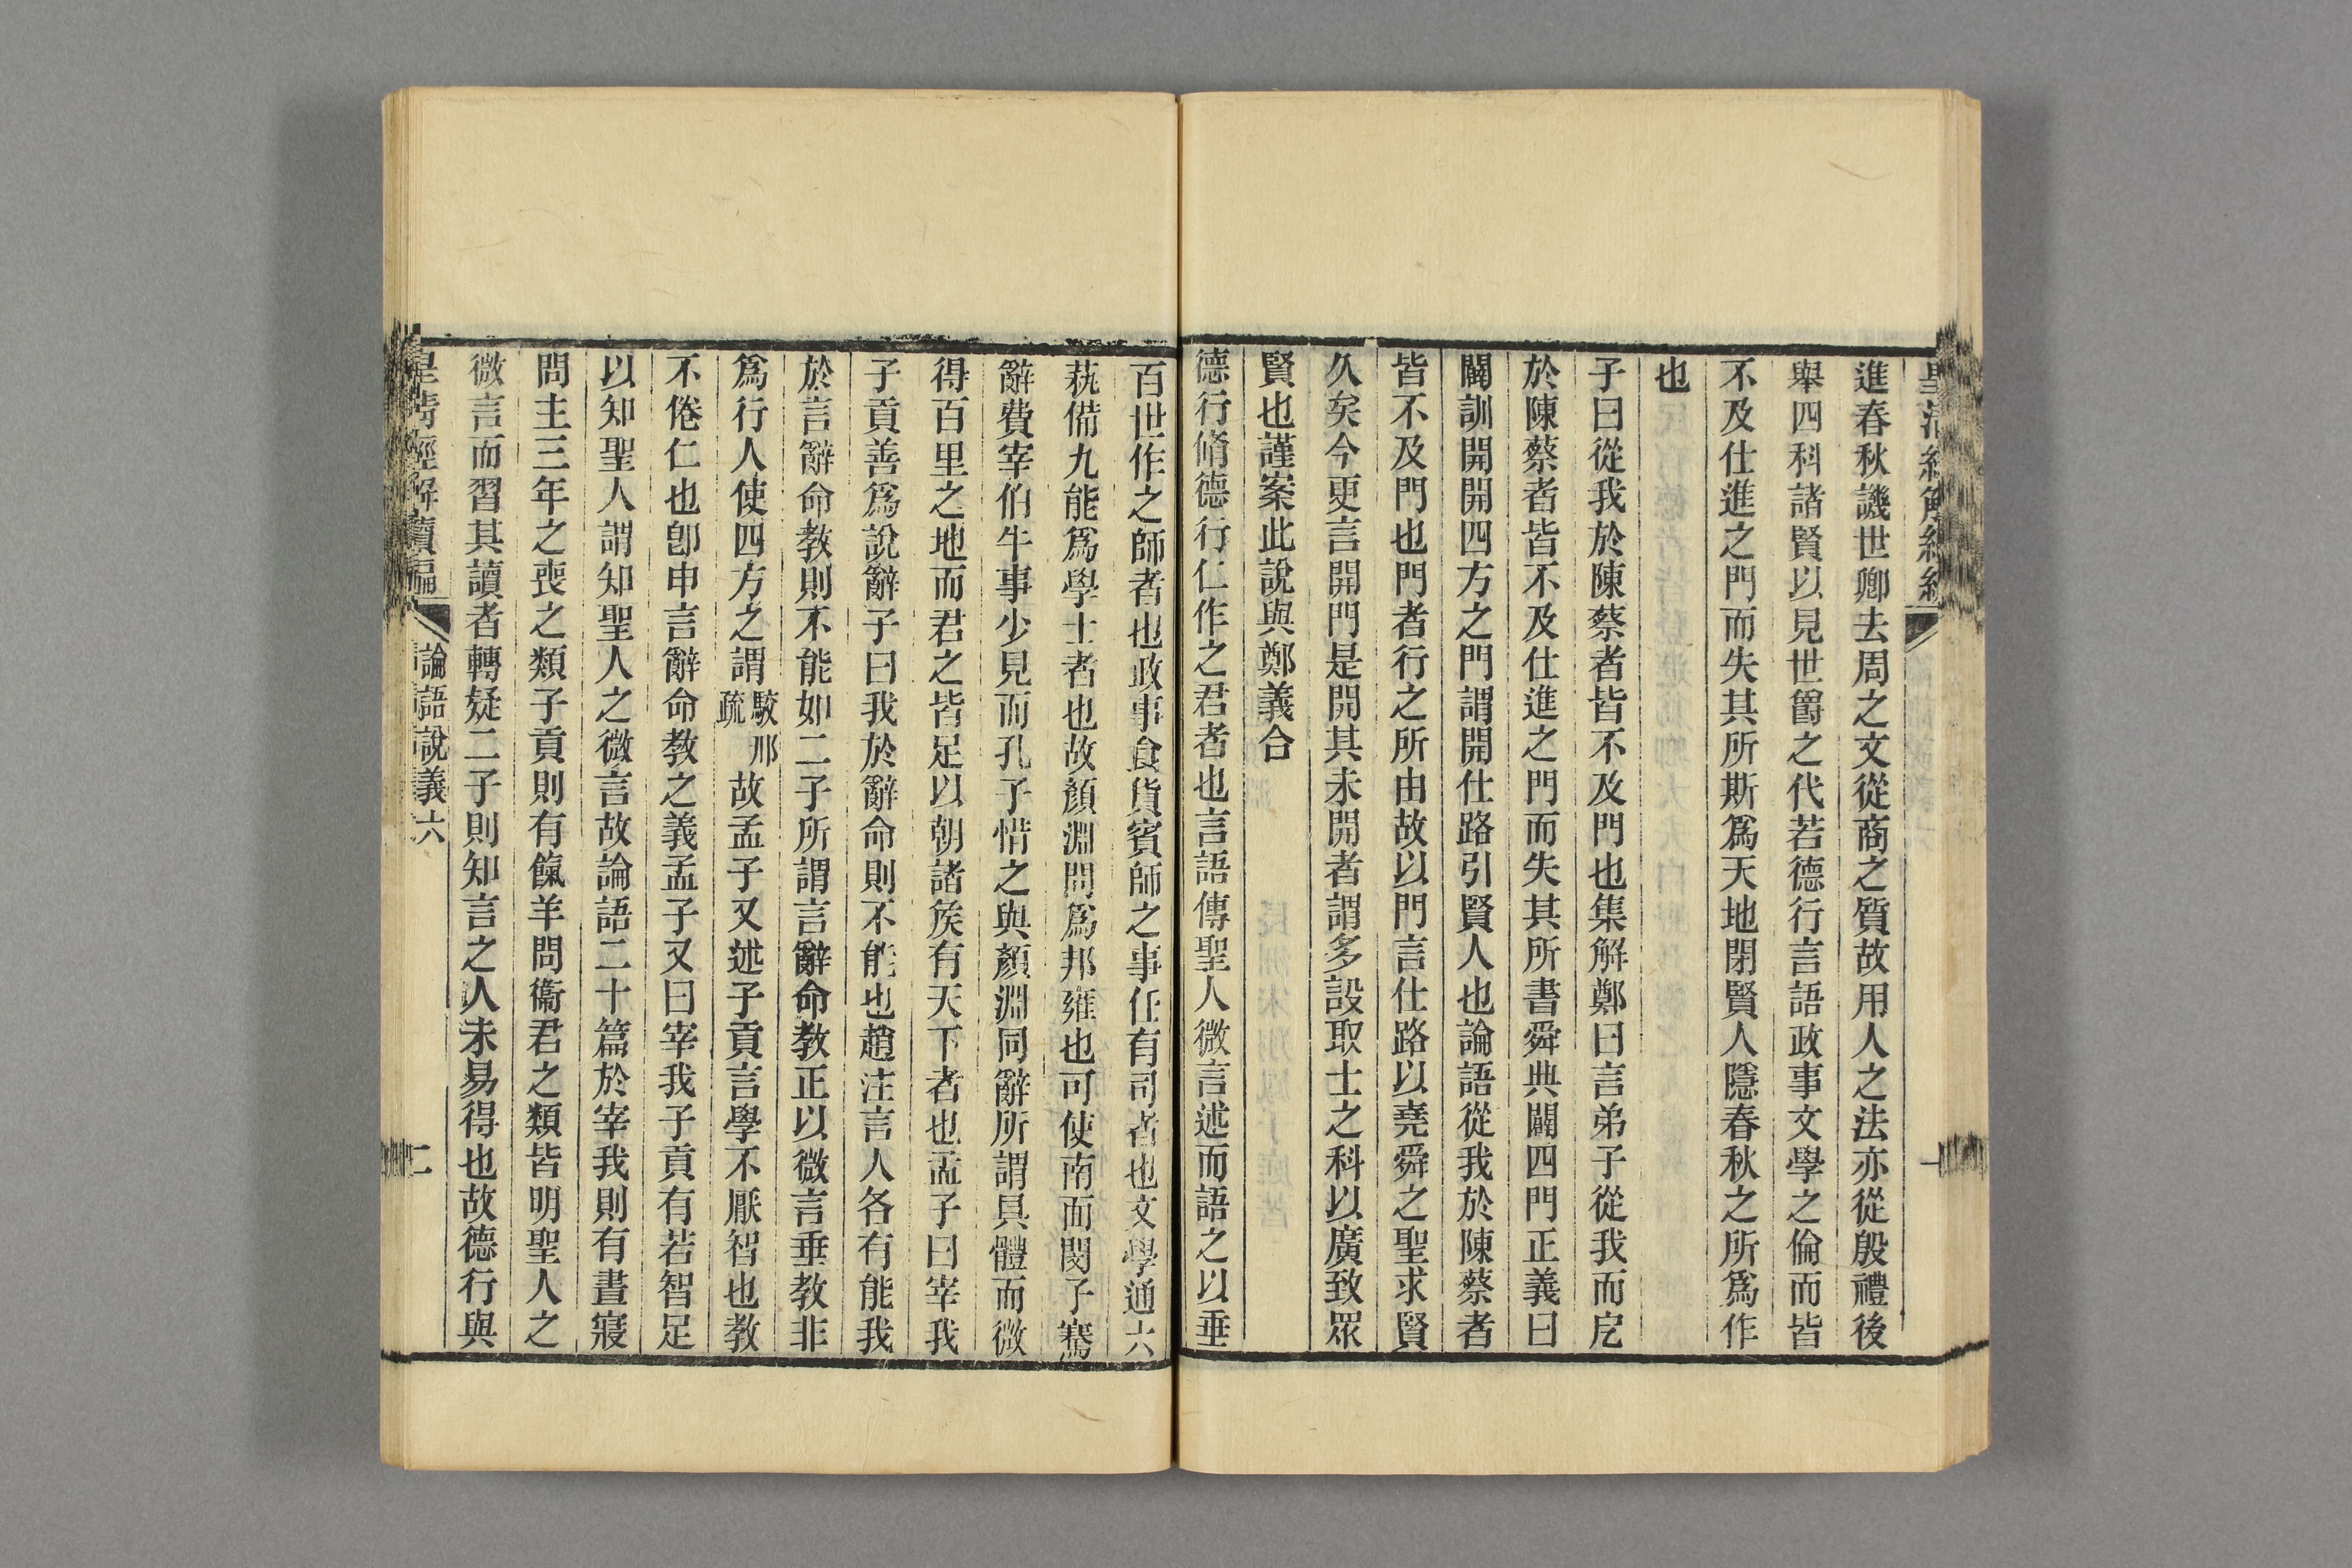 進春秋譏世卿去周之文從商之質故用人之法亦從殷禮後
舉四科諸賢以見世爵之代若德行言語政事文學之倫而皆
不及仕進之門而失其所斯爲天地閉賢人隱春秋之所爲作
也
子曰從我於陳蔡者皆不及門也集解鄭曰言弟子從我而戹
於陳蔡者皆不及仕進之門而失其所書舜典闢四門正義曰
闢訓開開四方之門謂開仕路引賢人也論語從我於陳蔡者
皆不及門也門者行之所由故以門言仕路以堯舜之聖求賢
久矣今更言開門是開其未開者謂多設取士之科以廣致眾
賢也謹案此說與鄭義合
德行脩德行仁作之君者也言語傳聖人微言述而語之以垂
百世作之師者也政事食貨賓師之事任有司者也文學通六
蓺備九能爲學士者也故顏淵問爲邦雍也可使南面閔子騫
辭費宰伯牛事少見而孔子惜之與顏淵同辭所謂具體而微
得百里之地而君之皆足以朝諸矦有天下者也孟子曰宰我
子貢善爲說辭子曰我於辭命則不能也趙注言人各有能我
於言辭命教則不能如二子所謂言辭命教正以微言垂教非
爲行人使四方之謂駮邢疏故孟子又述子貢言學不厭智也教
不倦仁也卽申言辭命教之義孟子又曰宰我子貢有若智足
以知聖人謂知聖人之微言故論語二十篇於宰我則有晝寢
問主三年之喪之類子貢則有餼羊問衞君之類皆明聖人之
微言而習其讀者轉疑二子則知言之人未易得也故德行與
皇清經解續編
論語說義六
二